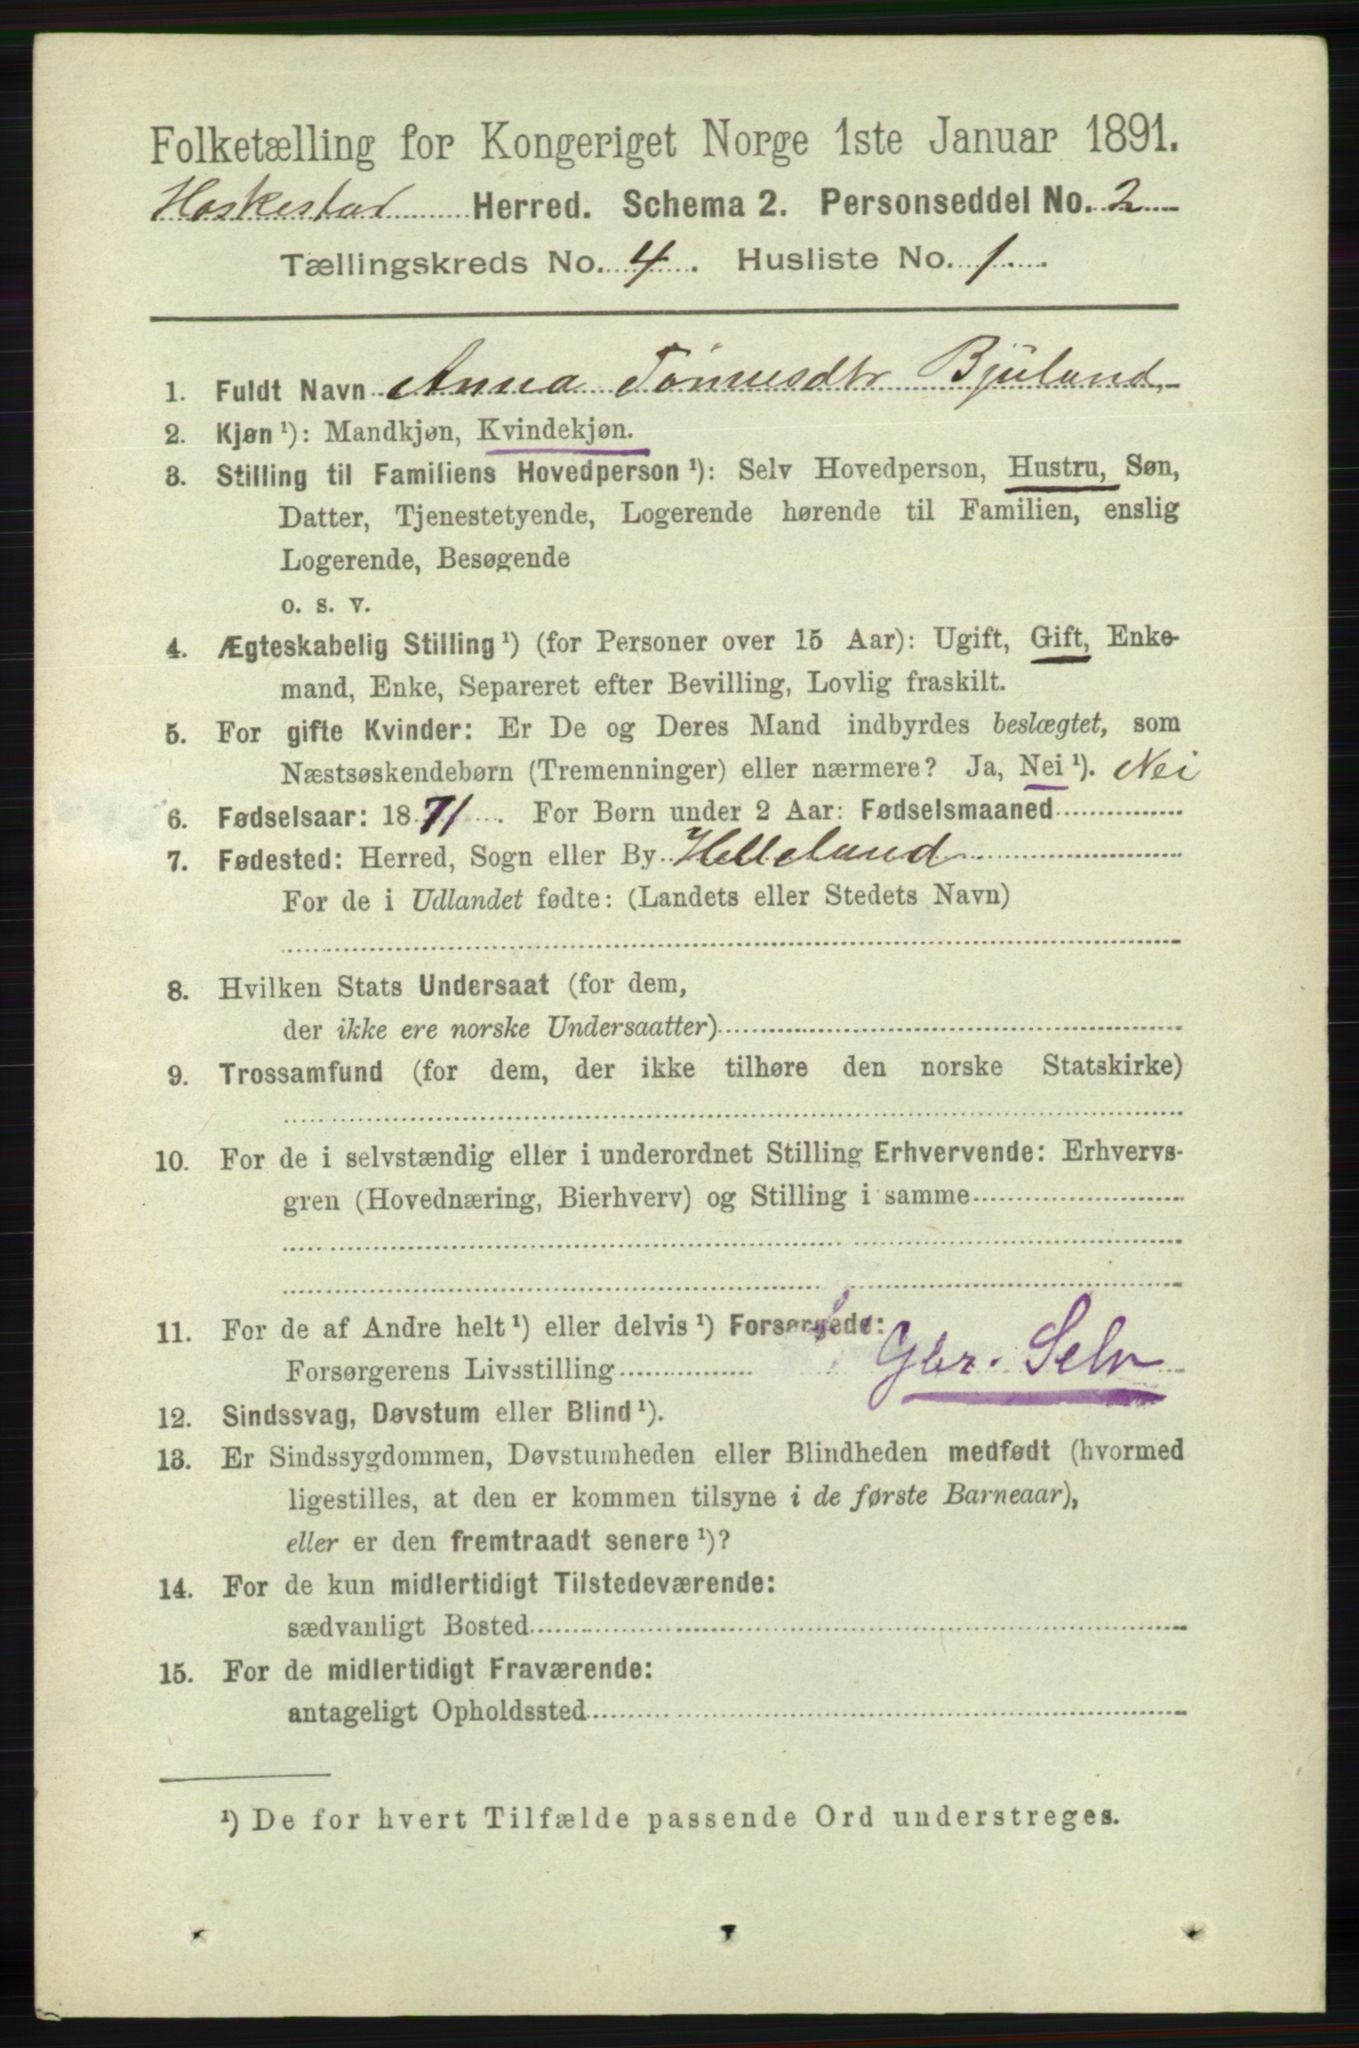 Folketælling for Kongeriget Norge 1ste Januar 1891.
Heskestad Herred. Schema 2. Personseddel No. 2
Tællingskreds No. 4. Husliste No. 1.
1. Fuldt Navn Anna Tønnesdtr Bjuland
2. Kjøn ¹): Mandkjøn, Kvindekjøn.
3. Stilling til Familiens Hovedperson ¹): Selv Hovedperson, Hustru, Søn,
Datter, Tjenestetyende, Logerende hørende til Familien, enslig
Logerende, Besøgende
o. s. v.
4. Ægteskabelig Stilling ¹) (for Personer over 15 Aar): Ugift, Gift, Enke-
mand, Enke, Separeret efter Bevilling, Lovlig fraskilt.
5. For gifte Kvinder: Er De og Deres Mand indbyrdes beslægtet, som
Næstsøskendebørn (Tremenninger) eller nærmere? Ja, Nei ¹). Nei
6. Fødselsaar: 1871. For Børn under 2 Aar: Fødselsmaaned
7. Fødested: Herred, Sogn eller By Helleland
For de i Udlandet fødte: (Landets eller Stedets Navn)
8. Hvilken Stats Undersaat (for dem,
der ikke ere norske Undersaatter)
9. Trossamfund (for dem, der ikke tilhøre den norske Statskirke)
10. For de i selvstændig eller i underordnet Stilling Erhvervende: Erhvervs-
gren (Hovednæring, Bierhverv) og Stilling i samme
11. For de af Andre helt ¹) eller delvis ¹) Forsørgede:
Forsørgerens Livsstilling Gbr. Selv
12. Sindssvag, Døvstum eller Blind ¹).
13. Er Sindssygdommen, Døvstumheden eller Blindheden medfødt (hvormed
ligestilles, at den er kommen tilsyne i de første Barneaar),
eller er den fremtraadt senere ¹)?
14. For de kun midlertidigt Tilstedeværende:
sædvanligt Bosted
15. For de midlertidigt Fraværende:
antageligt Opholdssted
¹) De for hvert Tilfælde passende Ord understreges.